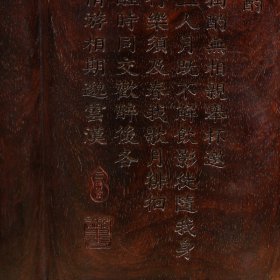 酌
獨酌無相親舉杯邀
人月既不解飲影徒隨我身
行樂須及春我歌月徘徊
醒時同交歡醉後各
情游相期邈雲漢